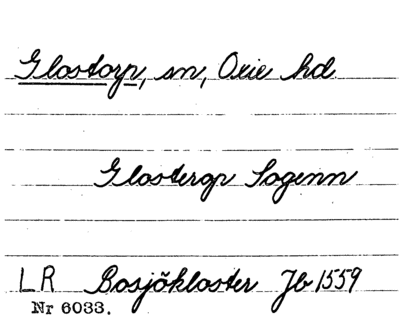 Glostorp, sn, Oxie hd.
Glosterop Sogenn
LR Bosjökloster Jb 1559
Nr 6033.